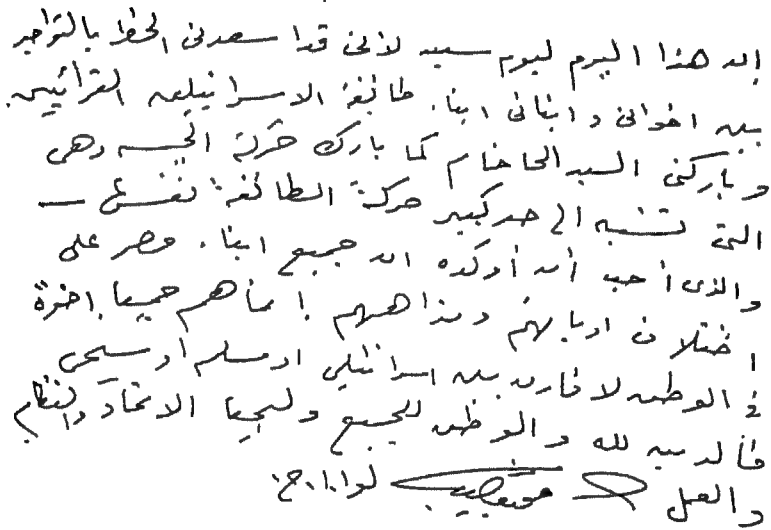 إن هذا اليوم ليوم سعيد لأنى قد أسعدنى الحظ بالتواجد
بين اخوانى وابنائى ابناء طائفة الاسرائيليين القرائيين
وباركنى السيد الحاخام كما بارك حركة الجيش وهى
التى تشبه الى حد كبير حركة الطائفة نفسها
والذى أحب أن أؤكده ان جميع ابناء مصر على
اختلاف اديانهم ومذاهبهم إنما هم جميعا إخوة
فى الوطن لا فارق بين اسرائيلى او مسلم او مسيحى
فالدين لله والوطن للجميع وليحيا الاتحاد والنظام
والعمل محمد نجيب لواء ا.ح.